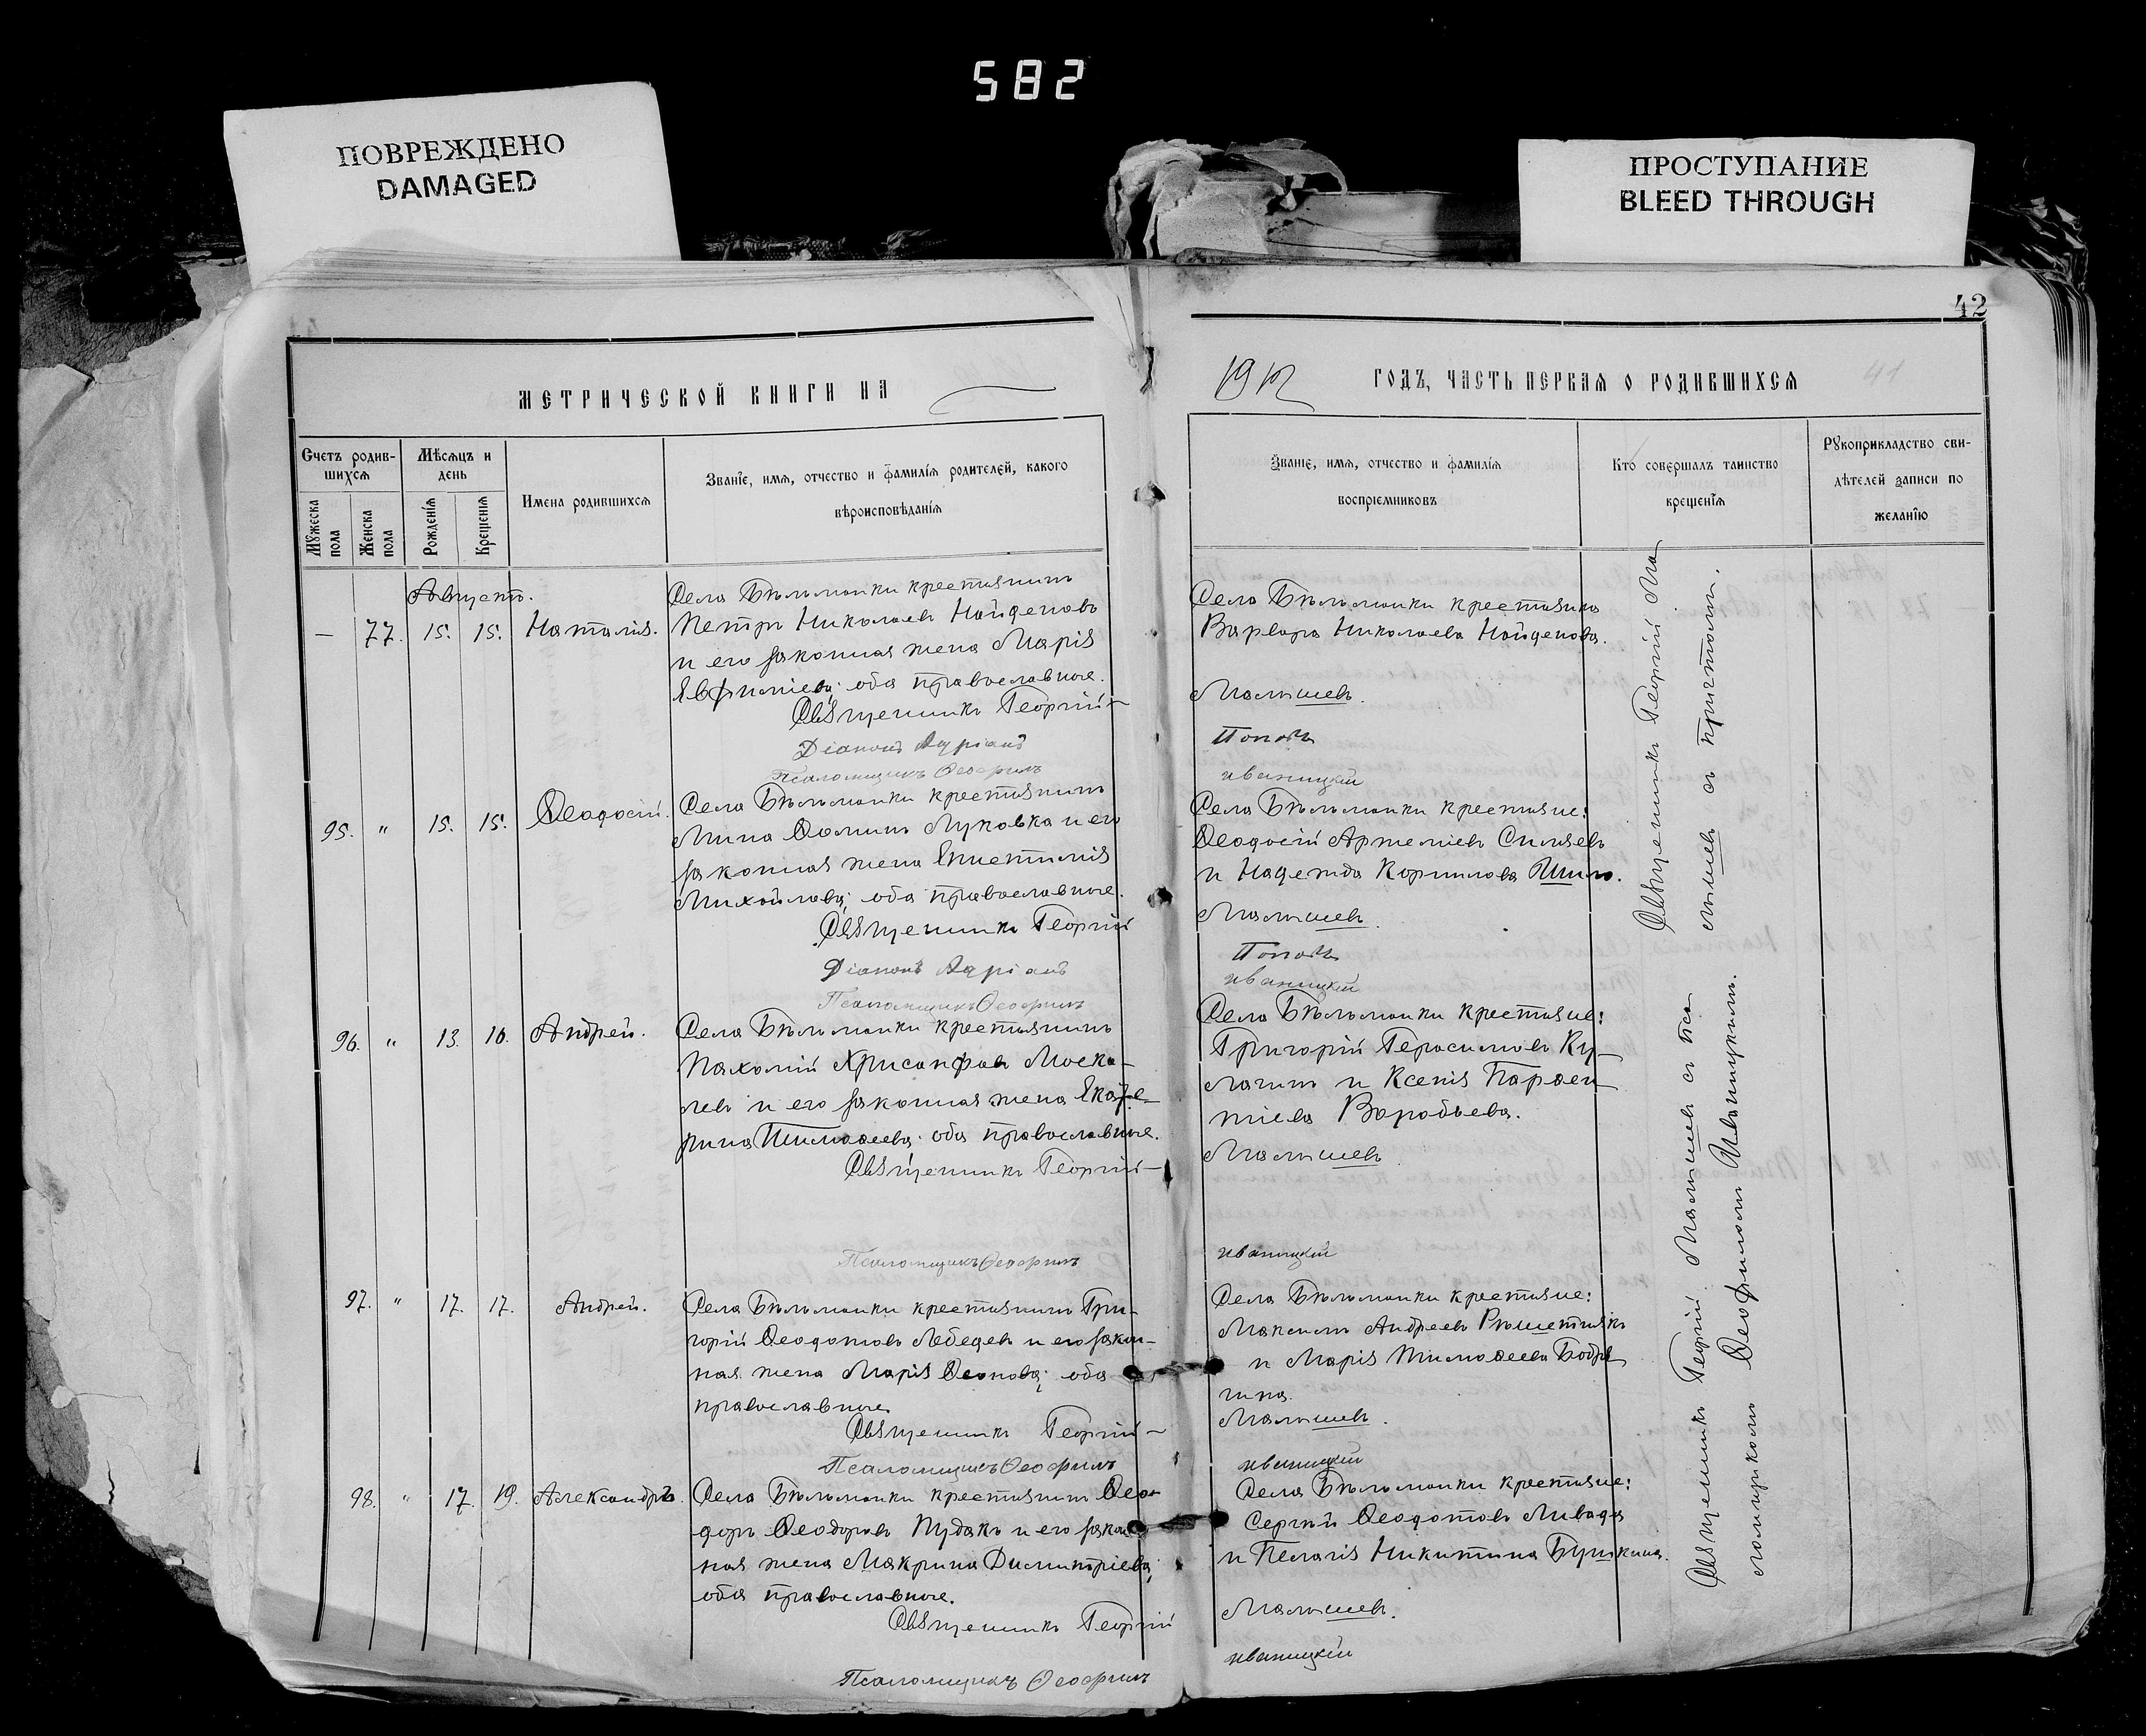 582
ПОВРЕЖДЕНО
DAMAGED
ПРОСТУПАНИЕ
BLEED THROUGH
42
МЕТРИЧЕСКОЙ КНИГИ НА
1912 ГОДЪ, ЧАСТЬ ПЕРВАЯ О РОДИВШИХСЯ
41
Счетъ родив-
шихся
Мѣсяцъ и
день
Мужеска
пола
Женска
пола
Рожденія
Крещенія
Имена родившихся
Званіе, имя, отчество и фамилія родителей, какого
вѣроисповѣданія
Званіе, имя, отчество и фамилія
воспріемниковъ
Кто совершалъ таинство
крещенія
Рукоприкладство сви-
дѣтелей записи по
желанію
Августъ.
— 77. 15. 15. Наталія.
Села Бѣльманки крестьянинъ
Петръ Николаевъ Найденовъ
и его законная жена Марія
Евфиміева; оба православные.
Священникъ Георгій
Діаконъ Адріанъ
Псаломщикъ Ѳеофилъ
Села Бѣльманки крестьянка
Варвара Николаева Найденова.
Малышевъ.
Поповъ
Иваницкій
95. " 15. 15. Ѳеодосій.
Села Бѣльманки крестьянинъ
Мина Ѳоминъ Луковка и его
законная жена Епистимія
Михайлова; оба православные.
Священникъ Георгій
Діаконъ Адріанъ
Псаломщикъ Ѳеофилъ
Села Бѣльманки крестьяне:
Ѳеодосій Артеміевъ Силяевъ
и Надежда Корнилова Шило.
Малышевъ.
Поповъ
Иваницкій
96. " 13. 16. Андрей.
Села Бѣльманки крестьянинъ
Пахомій Хрисанфовъ Моска-
левъ и его законная жена Екате-
рина Тимоѳеева; оба православные.
Священникъ Георгій
Псаломщикъ Ѳеофилъ
Села Бѣльманки крестьяне:
Григорій Герасимовъ Ку-
лагинъ и Ксенія Парѳен-
тіева Воробьева.
Малышевъ
Иваницкій
97. " 17. 17. Андрей.
Села Бѣльманки крестьянинъ Гри-
горій Ѳеодотовъ Лебедев и его закон-
ная жена Марія Ѳеонова; оба
православные.
Священникъ Георгій
Псаломщикъ Ѳеофилъ
Села Бѣльманки крестьяне:
Максимъ Андреевъ Рѣшетнякъ
и Марія Тимоѳеева Бодря
гина.
Малышевъ.
Иваницкій
98. " 17. 19. Александръ.
Села Бѣльманки крестьянинъ Ѳео-
доръ Ѳеодоровъ Пудакъ и его закон
ная жена Макрина Димитріева;
оба православные.
Священникъ Георгій
Псаломщикъ Ѳеофилъ
Села Бѣльманки крестьяне:
Сергѣй Ѳеодотовъ Ливада
и Пелагія Никитина Бушкина.
Малышевъ.
Иваницкій
Священникъ Георгій Ма
лышевъ съ причтомъ.
Священникъ Георгій Малышевъ съ Пса
ломщикомъ Ѳеофиломъ Иваницкимъ.